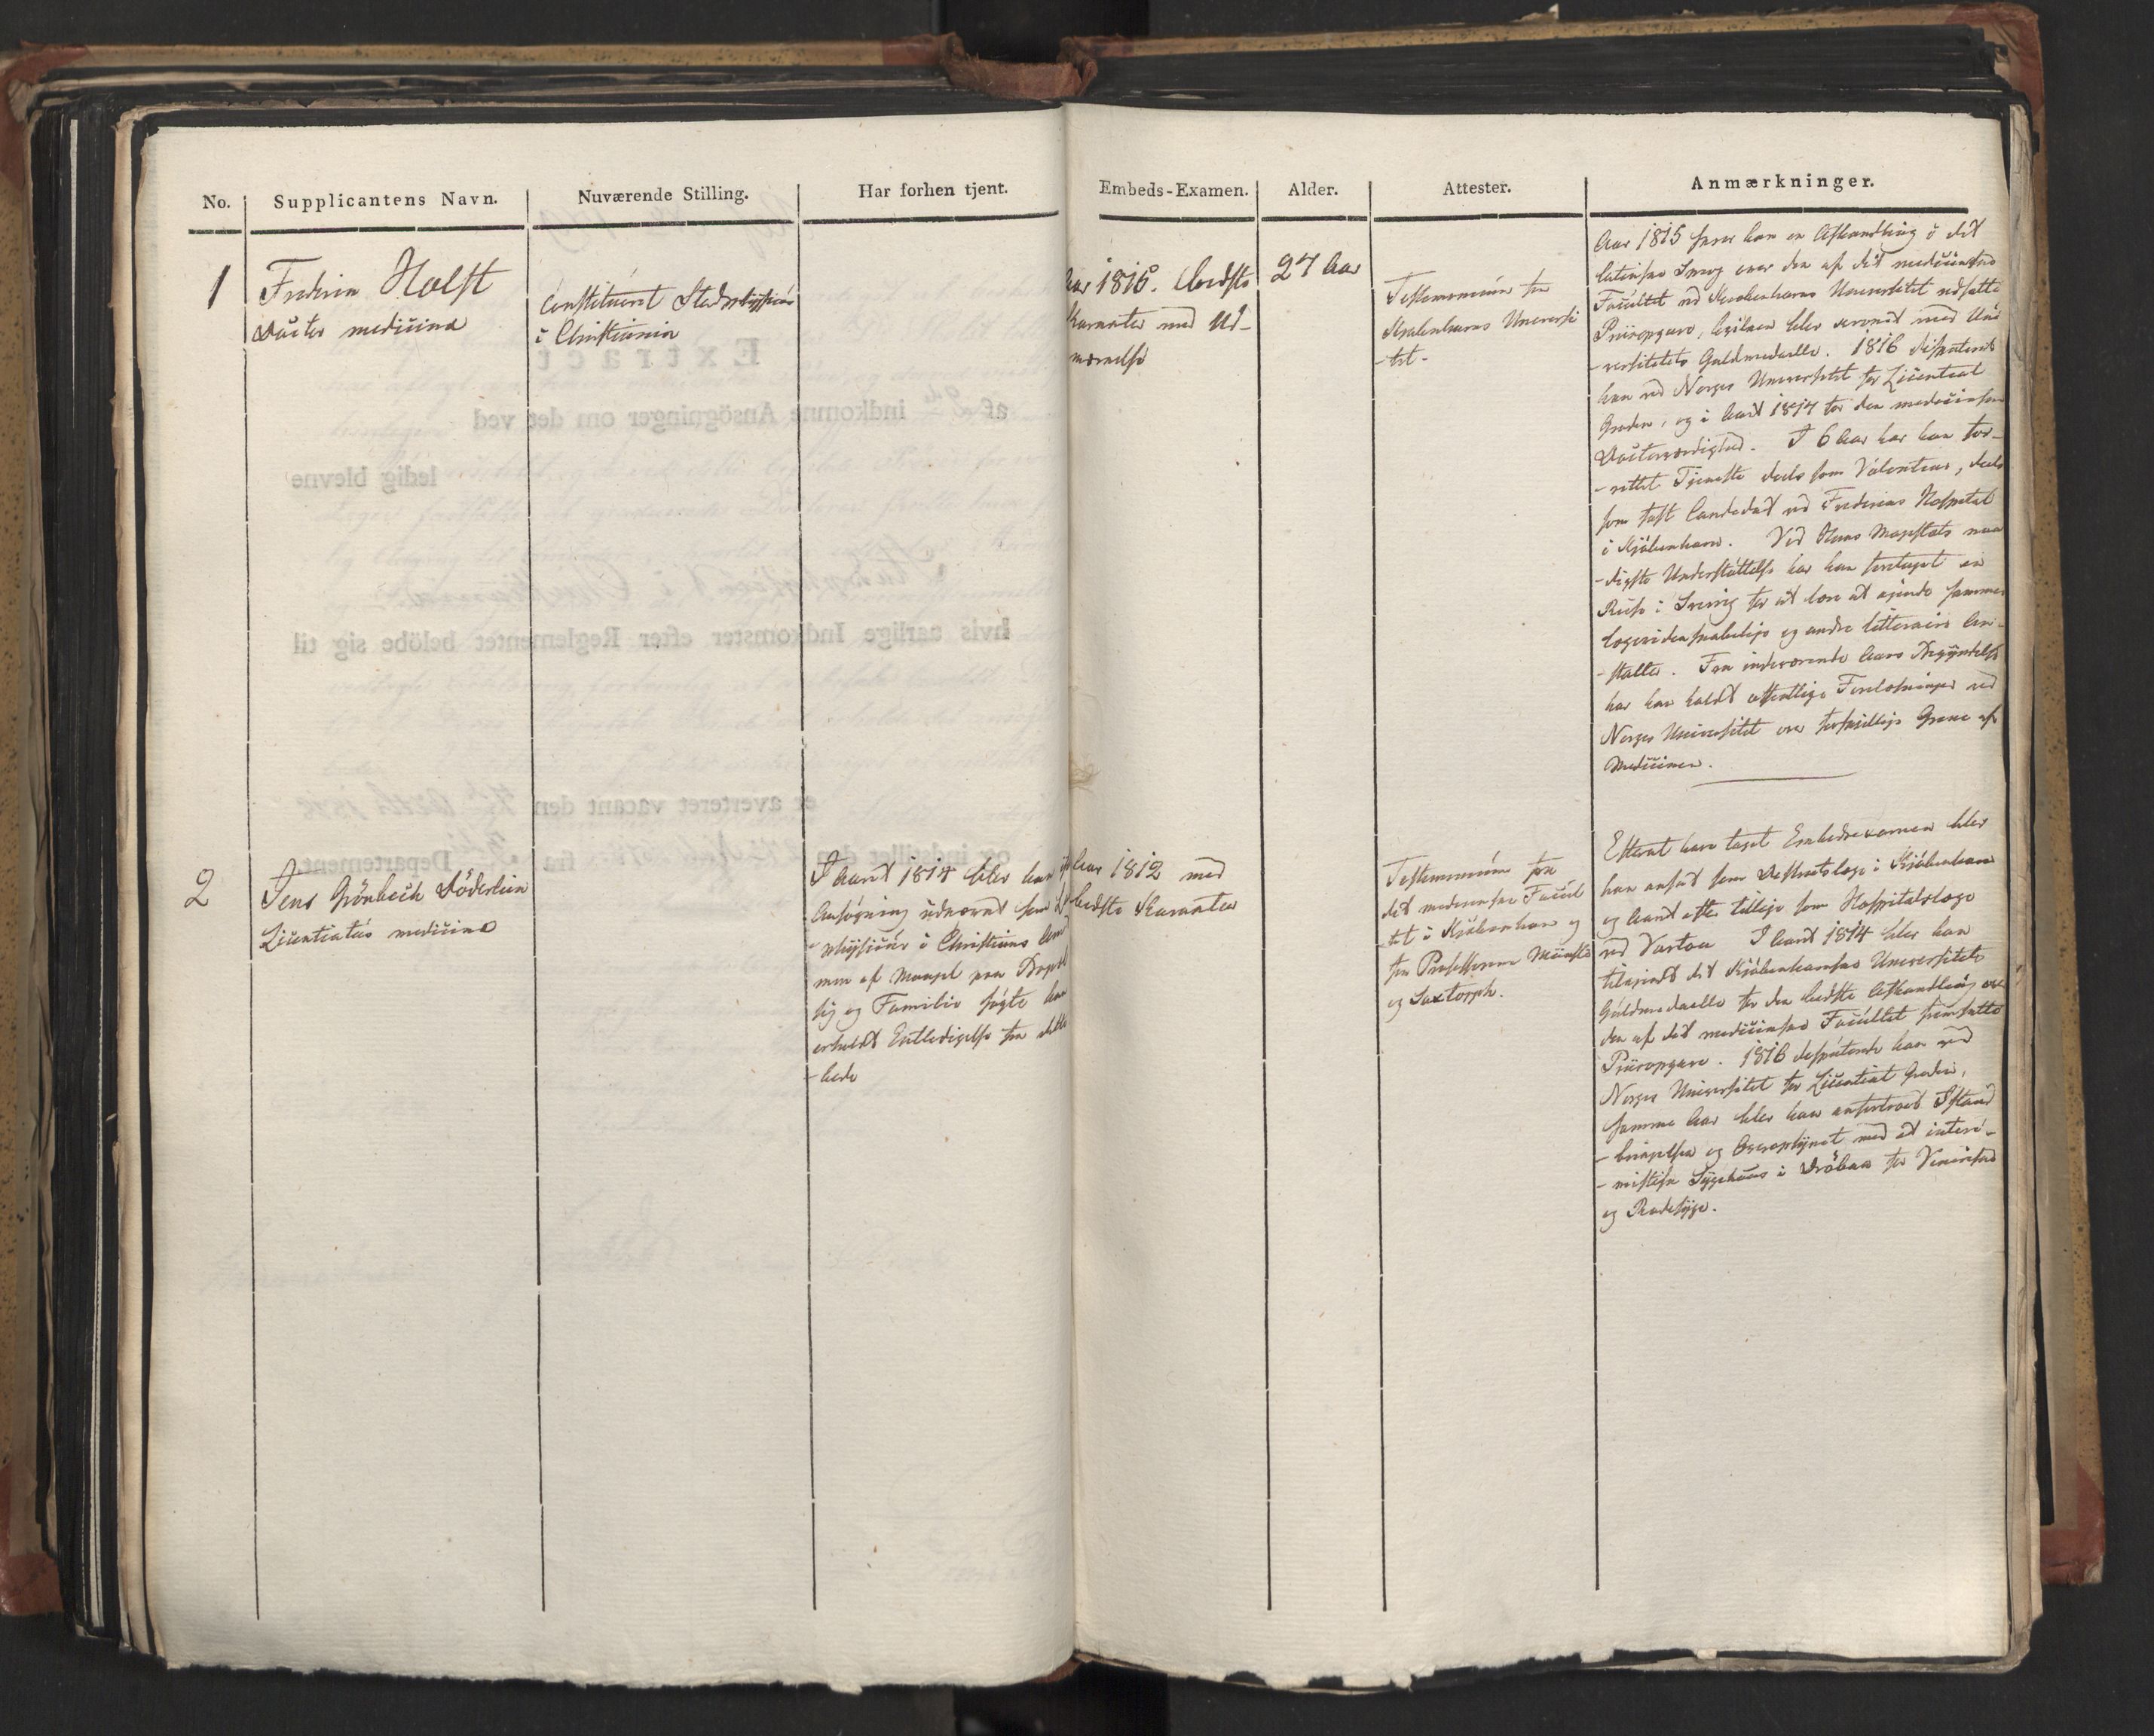 No.
Supplicantens Navn.
Nuværende Stilling.
Har forhen tjent.
Embeds-Examen.
Alder.
Attester.
Anmærkninger.
1
Frederik Holst
Doctor medicinæ
Constitueret Stadsphysicus
i Christiania
Aar 1815. Bedste
Karakter med Ud-
mærkelse
27 Aar
Testemonium fra
Kjøbenhavns Universi
-tet-
Aar 1815 skrev han en Afhandling i det
latinske Sprog over den af det medicinske
Facultet ved Kiøbenhavns Universitet udsatte
Priisopgave, hvilken blev kronet med Uni
-versitetets Guldmedaille. 1816 disputerede
han ved Norges Universitet for Licentiat
Graden, og i Aaret 1817 for den medicinske
Doctorværdighed. I 6 Aar har han for-
-rettet Tjeneste deels som Volonteur, deels
som fast Candidat ved Frederiks Hospital
i Kjöbenhavn. Ved Hans Majestæts naa
-digste Understöttelse har han foretaget en
Reise i Sverrig for at lære at kjende sammes
lægevidenskabelige og andre litteraire An-
-stalter. Fra indeværende Aars Begyndelse
har han holdt offentlige Forelæsninger ved
Norges Universitet over forskjellige Grene af
Medicinen.
2
Jens Grönbech Döderlein
Licentiatus medicinæ
I Aaret 1814 blev han
Ansögning udnævnt som
-physicus i Christians Amt
men af Mangel paa Bopæl
sig og Familie søgte han
erholdt Entledigelse fra dette
-bede
Aar 1812 med
bedste Karakter
Testemonium fra
det medicinske Facul
-tet i Kjöbenhavn og
fra Professorerne
og Saxtorph.
Efterat have taget Embedsexamen blev
han ansat som Districtslæge i Kjöbenhavn
og Aaret efter tillige som Hospitalslæge
ved Vartou I Aaret 1814 blev han
tilkjendt det Kjöbenhavnske Universitets
Guldmedaille for den bedste Afhandling over
den af det medicinske Facultet fremsatte
Priisopgave. 1816 disputerede han ved
Norges Universitet for Licentiat Graden,
samme Aar blev han anfortroet Istand
-bringelsen og Overopsynet med et interi-
-mistisk Sygehuus i Dröbak for Venerisk
og Radesyge.
Extract
af
indkomne Ansögninger om det ved
ledig blevne
i Christiania
hvis aarlige Indkomster efter Reglementet belöbe sig til
er averteret vacant den
og indstillet den
fra
Departement.